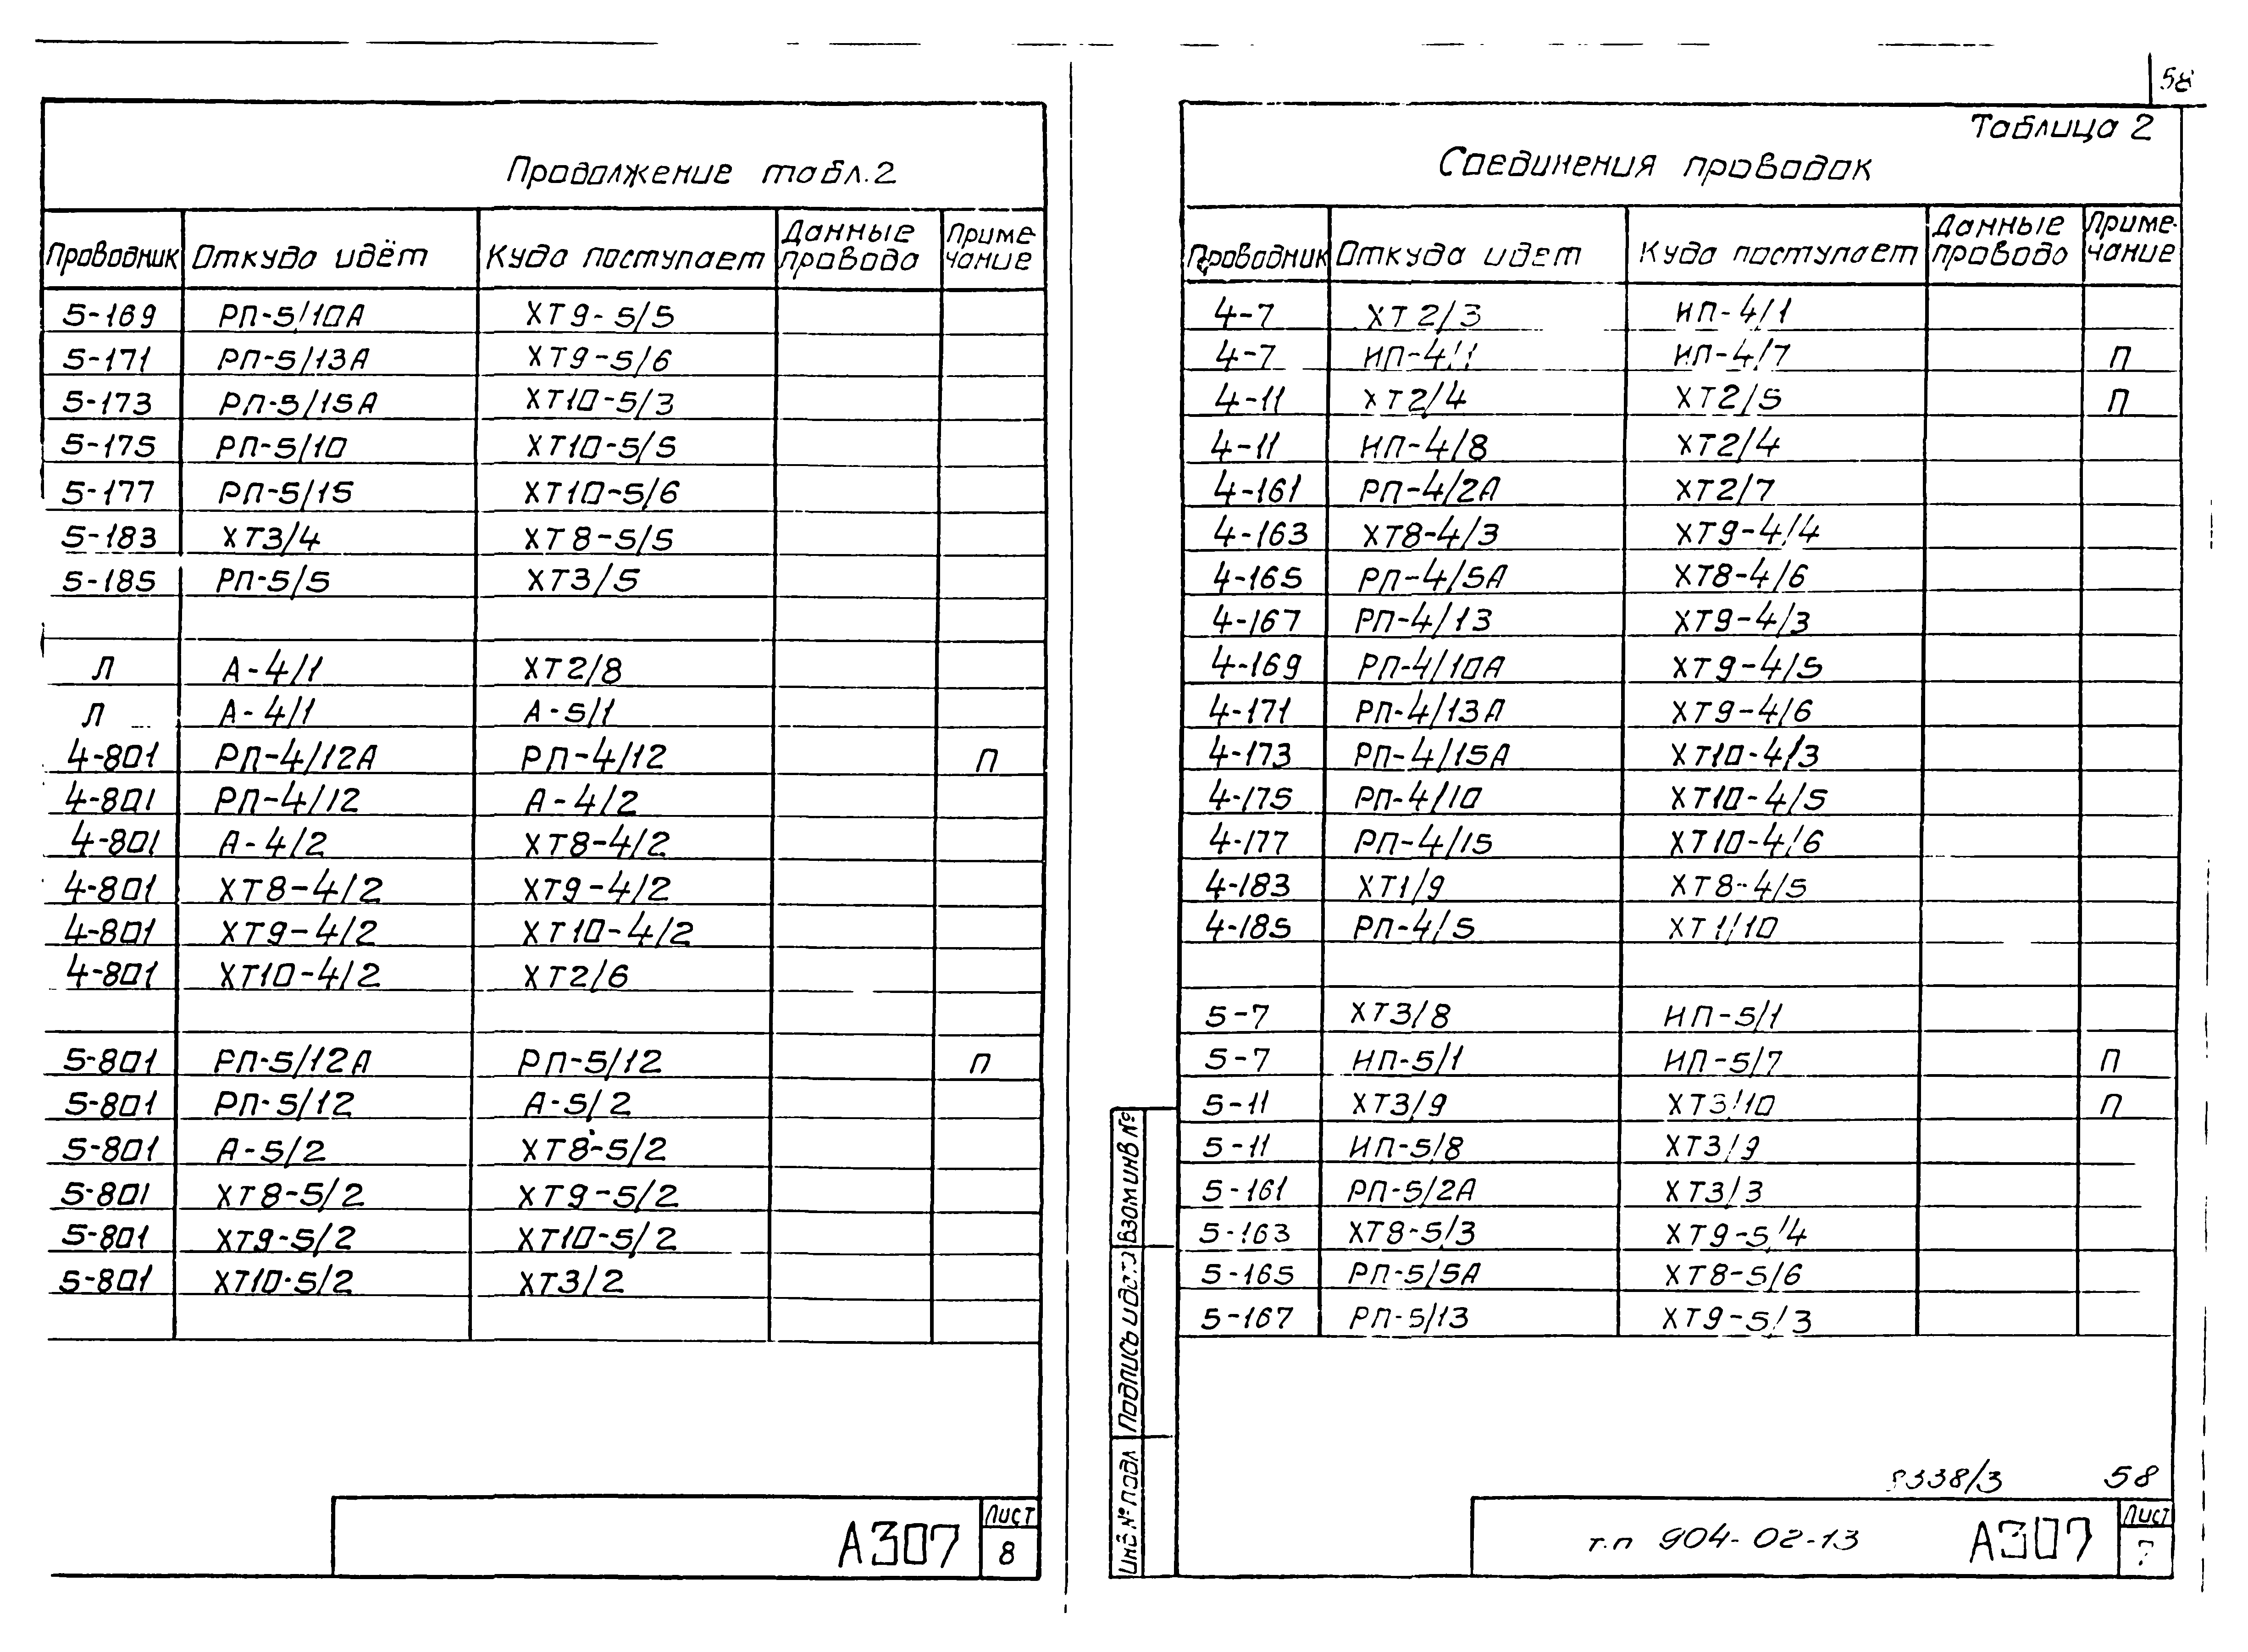 Продолжение табл.2
Проводник Откуда идёт Куда поступает Данные провода Примечание
5-169 РП-5/10А ХТ9-5/5
5-171 РП-5/13А ХТ9-5/6
5-173 РП-5/15А ХТ10-5/3
5-175 РП-5/10 ХТ10-5/5
5-177 РП-5/15 ХТ10-5/6
5-183 ХТ3/4 ХТ8-5/5
5-185 РП-5/5 ХТ3/5
Л А-4/1 ХТ2/8
Л А-4/1 А-5/1
4-801 РП-4/12А РП-4/12 П
4-801 РП-4/12 А-4/2
4-801 А-4/2 ХТ8-4/2
4-801 ХТ8-4/2 ХТ9-4/2
4-801 ХТ9-4/2 ХТ10-4/2
4-801 ХТ10-4/2 ХТ2/6
5-801 РП-5/12А РП-5/12 П
5-801 РП-5/12 А-5/2
5-801 А-5/2 ХТ8-5/2
5-801 ХТ8-5/2 ХТ9-5/2
5-801 ХТ9-5/2 ХТ10-5/2
5-801 ХТ10-5/2 ХТ3/2
А307
Лист
8
58
Таблица 2
Соединения проводок
Проводник Откуда идет Куда поступает Данные провода Приме-чание
4-7 ХТ2/3 ИП-4/1
4-7 ИП-4/1 ИП-4/7 П
4-11 ХТ2/4 ХТ2/5 П
4-11 ИП-4/8 ХТ2/4
4-161 РП-4/2А ХТ2/7
4-163 ХТ8-4/3 ХТ9-4/4
4-165 РП-4/5А ХТ8-4/6
4-167 РП-4/13 ХТ9-4/3
4-169 РП-4/10А ХТ9-4/5
4-171 РП-4/13А ХТ9-4/6
4-173 РП-4/15А ХТ10-4/3
4-175 РП-4/10 ХТ10-4/5
4-177 РП-4/15 ХТ10-4/6
4-183 ХТ1/9 ХТ8-4/5
4-185 РП-4/5 ХТ1/10
5-7 ХТ3/8 ИП-5/1
5-7 ИП-5/1 ИП-5/7 П
5-11 ХТ3/9 ХТ3/10 П
5-11 ИП-5/8 ХТ3/9
5-161 РП-5/2А ХТ3/3
5-163 ХТ8-5/3 ХТ9-5/4
5-165 РП-5/5А ХТ8-5/6
5-167 РП-5/13 ХТ9-5/3
Инв № подл Подпись и дата Взам инв №
58
т.п 904-02-13 А307
Лист